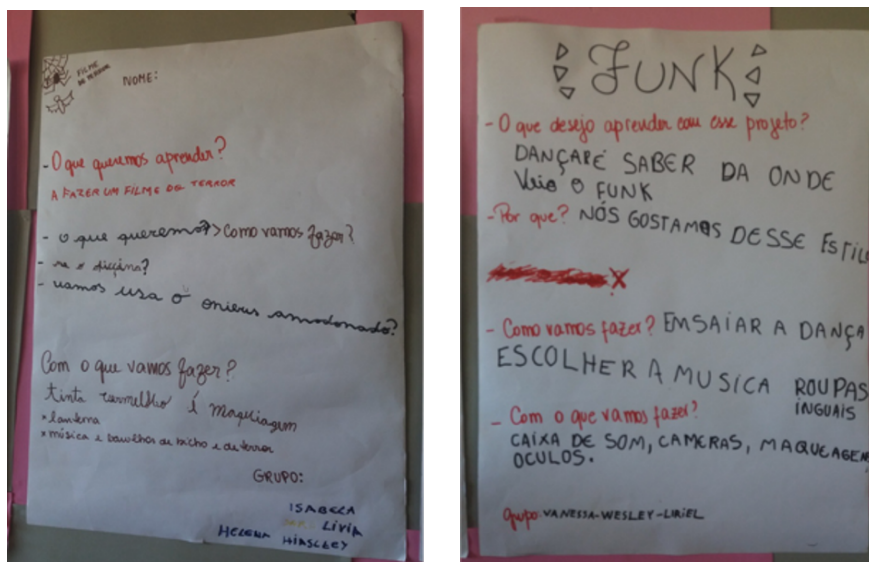 FILME
DE TERROR
NOME:
- O que queremos aprender?
A FAZER UM FILME DE TERROR
- o que queremos?> Como vamos fazer?
- re o
- vamos usa o onieus amodonado?
Com o que vamos fazer?
tinta vermelho é maquiagem
*lanterna
*música e baulhos de bicho e de terror
GRUPO:
ISABELA
LIVIA
HELENA HINSLLEY
FUNK
- O que desejo aprender com esse projeto?
DANÇARE SABER DA ONDE
Veio O FUNK
- Por que? NÓS GOSTAMOS DESSE ESTIL
- Como vamos fazer? EMSAIAR A DANÇA
ESCOLHER A MUSICA ROUPAS
INGUAIS
- Com o que vamos fazer?
CAIXA DE SOM, CAMERAS, MAQUEAGEM
OCULOS.
grupo: VANESSA-WESLEY-LIRIEL